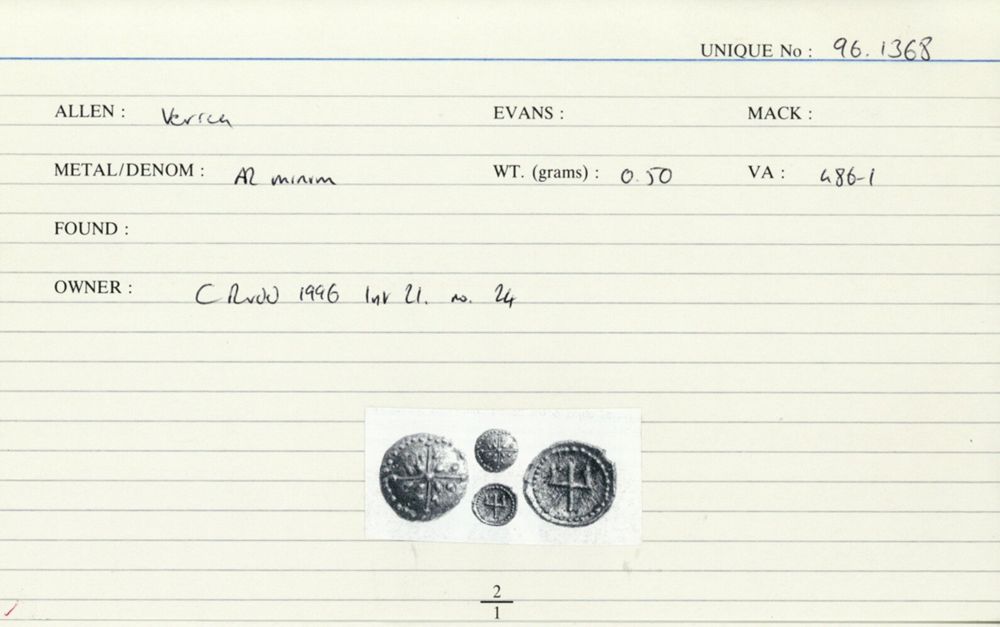 UNIQUE No : 96.1368
ALLEN : Verica EVANS : MACK :
METAL/DENOM : AR minim WT. (grams) : 0.50 VA : 486-1
FOUND :
OWNER : C Rudd 1996 24
2
1